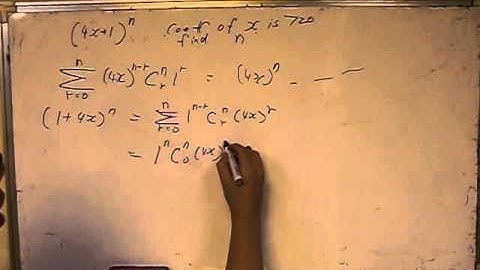 (4x+1)^n Coeff of x is 720
find n
∑_{r=0}^{n} (4x)^{n-r} C_r^n 1^r = (4x)^n - - -
(1+4x)^n = ∑_{r=0}^{n} 1^{n-r} C_r^n (4x)^r
= 1^n C_0^n (4x)